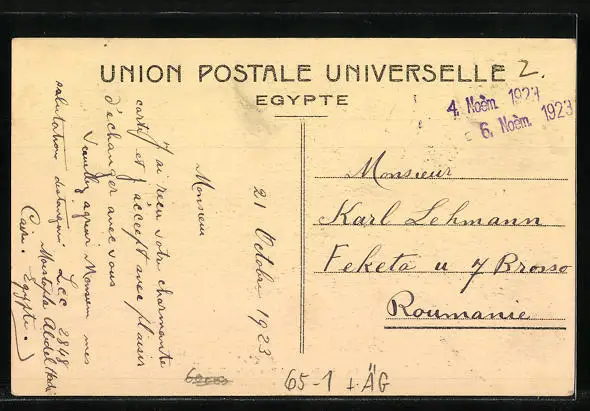 UNION POSTALE UNIVERSELLE
EGYPTE
2.
4. Noëm. 1923
6. Noëm. 1923
Monsieur
Karl Lehmann
Feketa u 7 Brosso
Roumanie
21 Octobre 1923
Monsieur
J'ai reçu votre charmante
carte et j'accepte avec plaisir
d'échanger avec vous
Veuillez agréer Monsieur mes
salutations distingués
L.c.c 2848
Mostapha Abdel
Caire. Egypte.
65-1 + ÄG